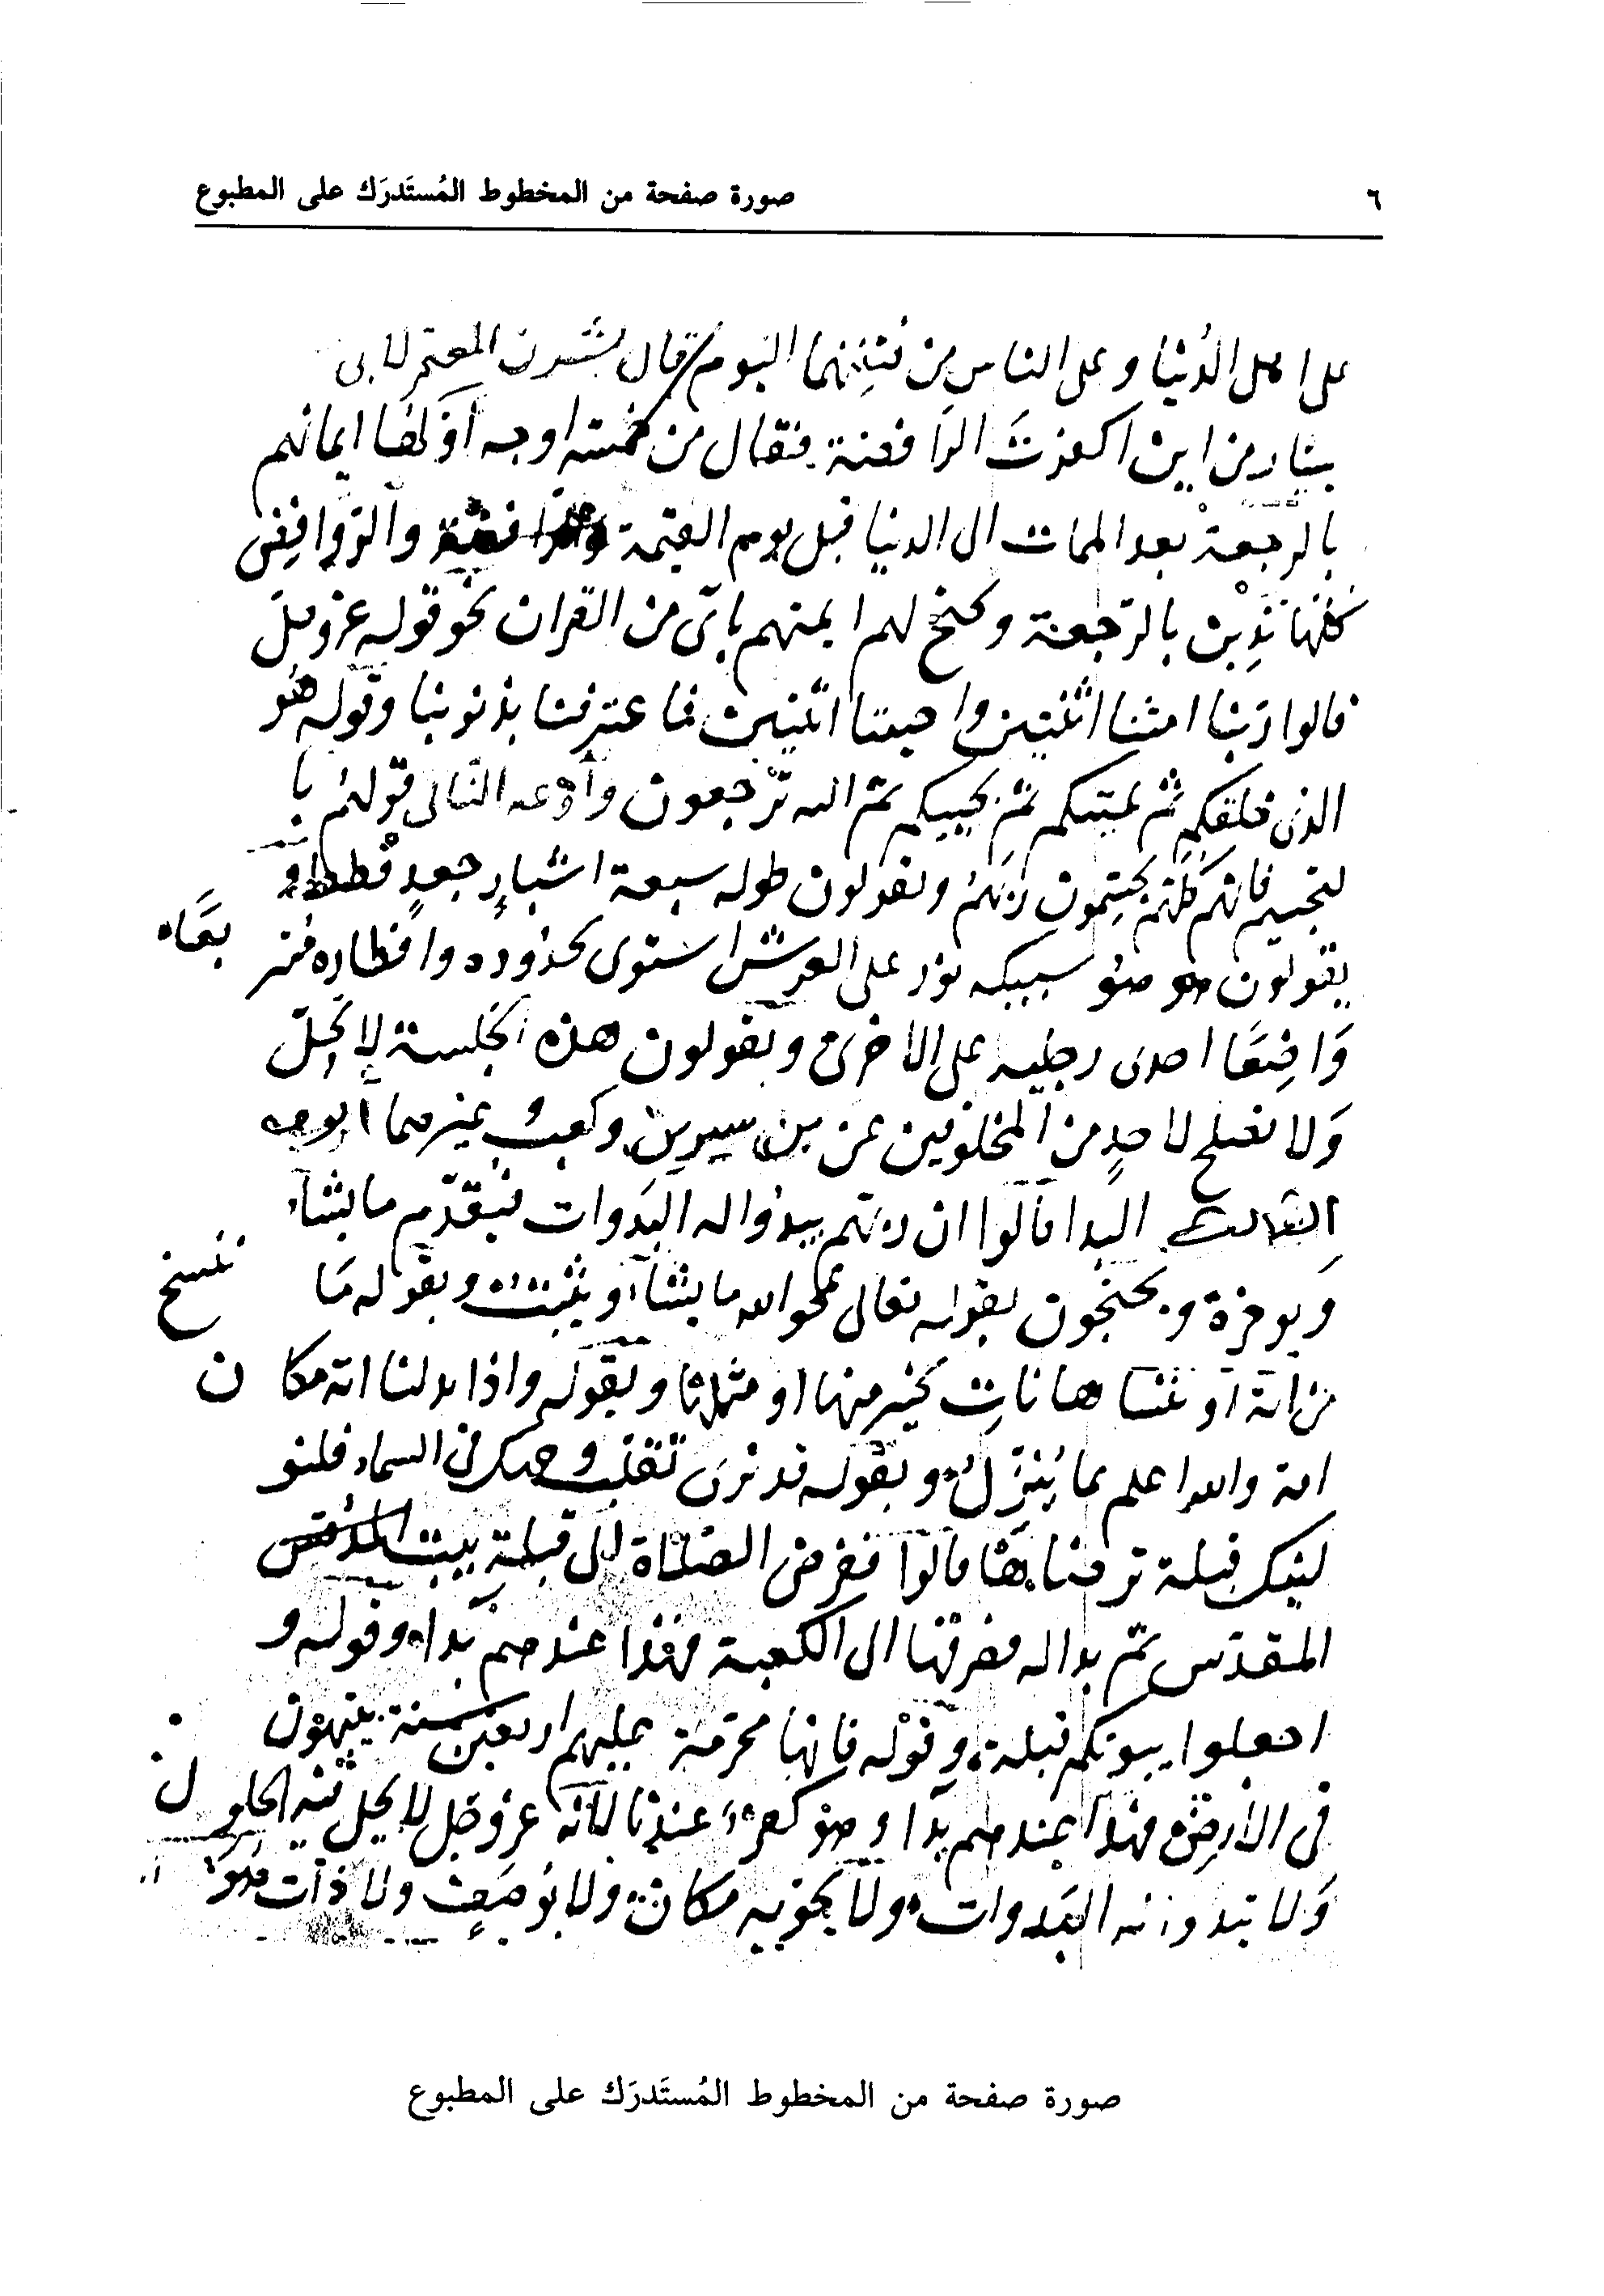 ٦
صورة صفحة من المخطوط المُستَدرَك على المطبوع
على اهل الدُنيا وعلى الناس من نتنهما اليوم قال بشر بن المعتمر لابى
من اين اكفرت الرَافضة فقال من خمسة اوجه اولها ايمانهم
بالرجعة بعد الممات الى الدنيا قبل يوم القيمة والروافض
كلها تَدِين بالرّجعة وتحتج لهم ايمتهم باى من القران نحو قوله عز وجلّ
قالوا رَبنا امتنا اثنتين واحيتنا اثنتين فاعترفنا بذنوبنا وقوله هو
الذى خلقكم ثم يميتكم ثم يحييكم ثم اليه ترجعون والوجه الثانى قولهم با
لتجسيم فانهم كلهم يجسمون ربهم ويقولون طوله سبعة اشبارٍ جعدٍ قطط او
يقولون هو ضو سبيكه نور على العرش استوى بحدوده واقطاره متربعاه
وَاضعًا احدى رجليه على الاخرى ويقولون هذه الجلسة لا تحلّ
وَلا تصلح لاحدٍ من المخلوقين عن بن سيرين وكعب وغيرهما الوجه
الثالث البدا قالوا ان ربهم يبدوا له البَدوات فيقدّم ما يشآء
وَيوخره ويحتجون بقوله تعالى يمحو الله ما يشآء ويثبت وبقوله مَا ننسخ
من اية او ننساها نات بخير منها او مثلها وبقوله واذا بدلنا اية مكان
اية والله اعلم بما يُنزّل وبقوله قد نرى تقلب وجهك فى السماء فلنو
لينك قبلة ترضاها قالوا ففرض الصلاة الى قبلة بيت المقدس
المقدّس ثم بدا له فصرفها الى الكعبة فهذا عندهم بداء وقوله و
اجعلوا بيوتكم قبلة وقوله فانها محرّمة عليهم اربعين سنة يتيهون
فى الارض فهذا عندهم بدا وهو كفر عندنا لانه عز وجل لا يحل فيه الحلول
وَلا تبدوا له البَدوات ولا يحويه مكان ولا يوصَف ولا ذات
صورة صفحة من المخطوط المُستَدرَك على المطبوع